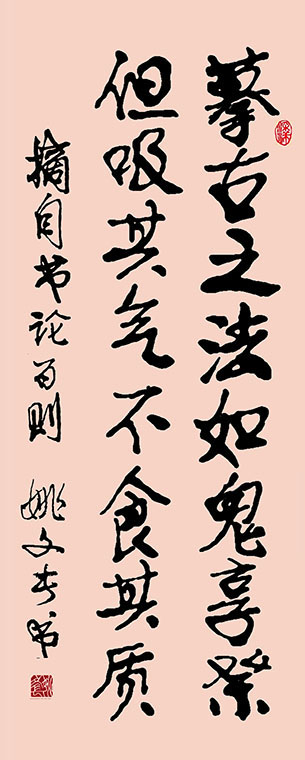 摹古之法如鬼享祭
但吸其气不食其质
摘自书论百则 姚文奎书